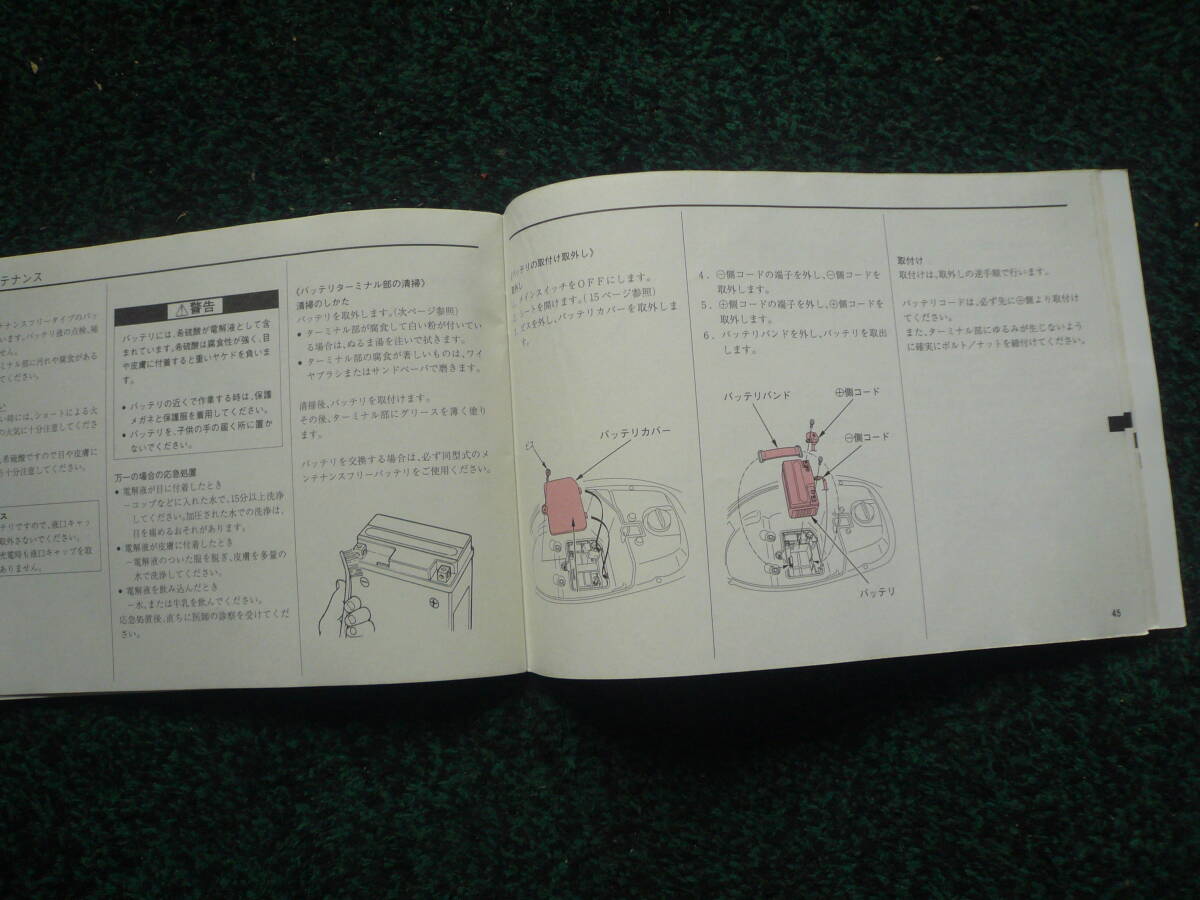 テナンス
テナンスフリータイプのバッ
います。バッテリ液の点検、補
せん。
ミナル部に汚れや腐食がある
てください。
い時には、ショートによる火
の火気に十分注意してくださ
、希硫酸ですので目や皮膚に
う十分注意してください。
ス
テリですので、液口キャッ
取外さないでください。
充電時も液口キャップを取
ありません。
⚠警告
バッテリには、希硫酸が電解液として含
まれています。希硫酸は腐食性が強く、目
や皮膚に付着すると重いヤケドを負いま
す。
● バッテリの近くで作業する時は、保護
メガネと保護服を着用してください。
● バッテリを、子供の手の届く所に置か
ないでください。
万一の場合の応急処置
● 電解液が目に付着したとき
−コップなどに入れた水で、15分以上洗浄
してください。加圧された水での洗浄は、
目を痛めるおそれがあります。
● 電解液が皮膚に付着したとき
−電解液のついた服を脱ぎ、皮膚を多量の
水で洗浄してください。
● 電解液を飲み込んだとき
−水、または牛乳を飲んでください。
応急処置後、直ちに医師の診察を受けてくだ
さい。
《バッテリターミナル部の清掃》
清掃のしかた
バッテリを取外します。(次ページ参照)
● ターミナル部が腐食して白い粉が付いてい
る場合は、ぬるま湯を注いで拭きます。
● ターミナル部の腐食が著しいものは、ワイ
ヤブラシまたはサンドペーパで磨きます。
清掃後、バッテリを取付けます。
その後、ターミナル部にグリースを薄く塗り
ます。
バッテリを交換する場合は、必ず同型式のメ
ンテナンスフリーバッテリをご使用ください。
⊕
《バッテリの取付け取外し》
取外し
メインスイッチをOFFにします。
シートを開けます。(15ページ参照)
ビスを外し、バッテリカバーを取外しま
す。
ビス
バッテリカバー
4. ⊖側コードの端子を外し、⊖側コードを
取外します。
5. ⊕側コードの端子を外し、⊕側コードを
取外します。
6. バッテリバンドを外し、バッテリを取出
します。
バッテリバンド
⊕側コード
⊖側コード
バッテリ
取付け
取付けは、取外しの逆手順で行います。
バッテリコードは、必ず先に⊕側より取付け
てください。
また、ターミナル部にゆるみが生じないよう
に確実にボルト/ナットを締付けてください。
45